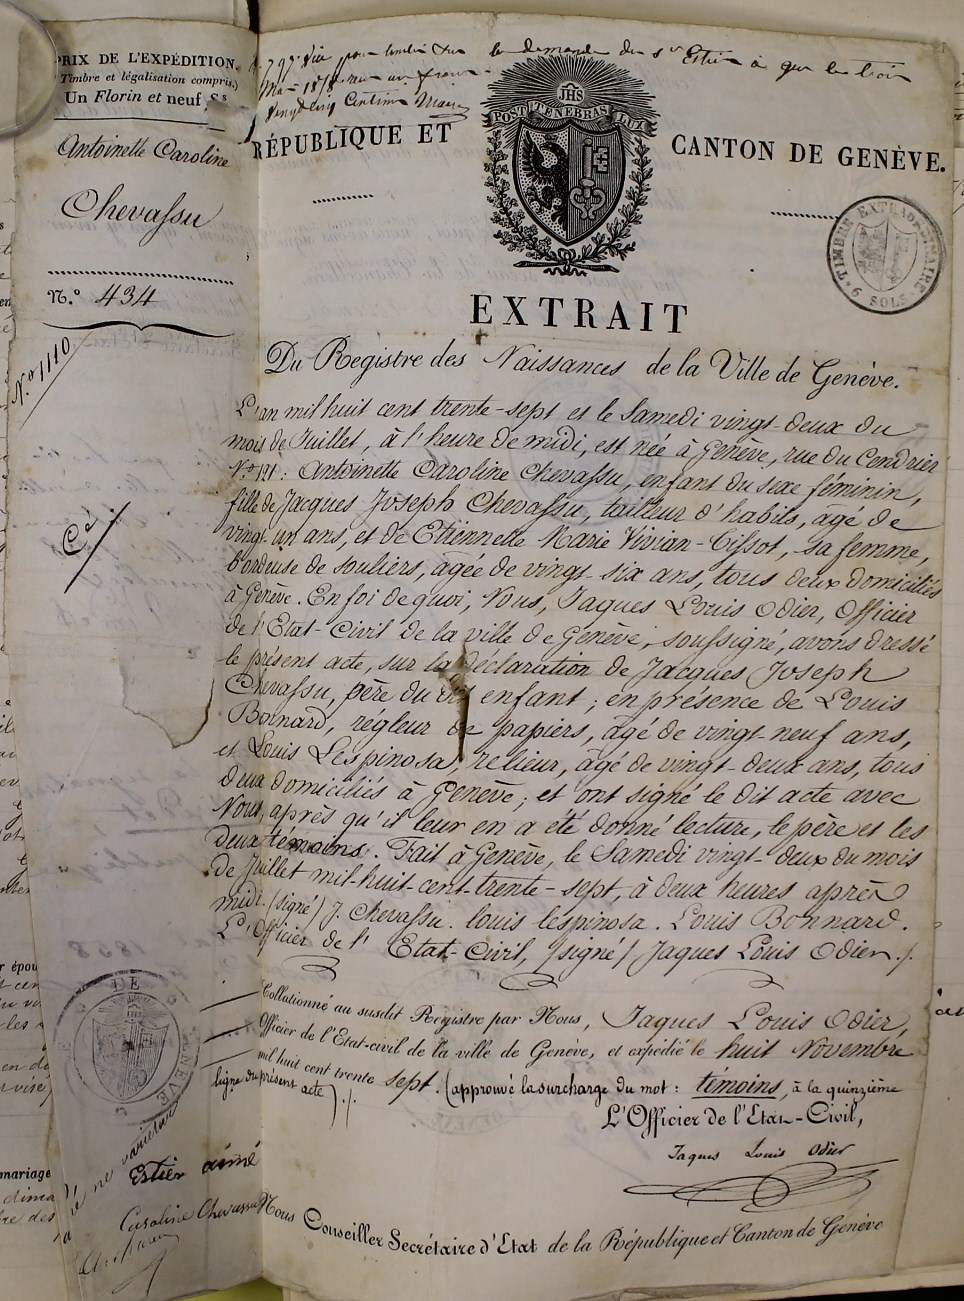 PRIX DE L'EXPÉDITION.
Timbre et légalisation compris.)
Un Florin et neuf S.s
Antoinette Caroline
Chevassu
N.° 434
N.° 1110
C.é
la demande du s.r Estier à
vingt cinq Centimes
JHS
POST TENEBRAS LUX
RÉPUBLIQUE ET
CANTON DE GENÈVE.
TIMBRE EXTRAORDINAIRE
9 SOLS
EXTRAIT
Du Registre des Naissances de la Ville de Genève.
L'an mil huit cent trente-sept et le Samedi vingt-deux du
mois de Juillet, à l'heure de midi, est née à Genève, rue du Cendrier
N.° 121: Antoinette Caroline Chevassu, enfant du sexe féminin,
fille de Jacques Joseph Chevassu, tailleur d'habits, âgé de
vingt-un ans, et de Etiennette Marie Vivian-Tissot, sa femme,
bordeuse de souliers, âgée de vingt-six ans, tous deux domiciliés
à Genève. En foi de quoi, Nous, Jaques Louis Odier, Officier
de l'Etat-Civil de la ville de Genève, soussigné, avons dressé
le présent acte, sur la déclaration de Jacques Joseph
Chevassu, père du dit enfant; en présence de Louis
Bonnard, régleur de papiers, âgé de vingt-neuf ans,
et Louis Lespinosa, relieur, âgé de vingt-deux ans, tous
deux domiciliés à Genève; et ont signé le dit acte avec
Nous, après qu'il leur en a été donné lecture, le père et les
deux témoins. Fait à Genève, le Samedi vingt-deux du mois
de Juillet mil-huit-cent-trente-sept, à deux heures après
midi. (signé) J. Chevassu. louis lespinosa. Louis Bonnard.
L'Officier de l'Etat-Civil, (signé) Jaques Louis Odier./.
Collationné au susdit Registre par Nous, Jaques Louis Odier,
Officier de l'Etat-civil de la ville de Genève, et expédié le huit Novembre
mil huit cent trente sept. (approuvé la surcharge du mot: témoins, à la quinzième
ligne du présent acte)./.
L'Officier de l'Etat-Civil,
Jaques Louis Odier
DE GENÈVE
ne varietur
Estier aimé
Caroline Chevassu
Nous Conseiller Secrétaire d'Etat de la République et Canton de Genève
r épou
mariage